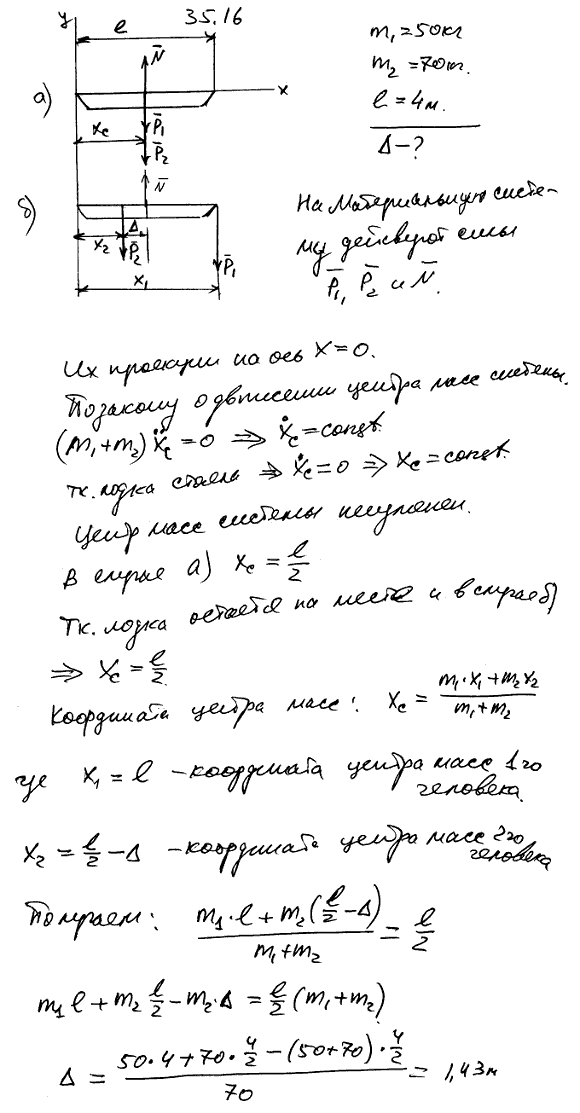 35.16
y
l
N̄
а)
x
x_c
P̄₁
P̄₂
m₁=50кг
m₂=70кг.
l=4м.
Δ-?
б)
N̄
x₂ Δ
P̄₂
P̄₁
x₁
На материальную систе-
му действуют силы
P̄₁, P̄₂ и N̄.
Их проекции на ось X=0.
По закону о движении центра масс системы.
(m₁+m₂)ẍ_c=0 ⇒ ẋ_c=const.
тк. лодка стояла ⇒ ẋ_c=0 ⇒ x_c=const.
Центр масс системы неизменен.
В случае а) x_c = l/2
Тк. лодка остаётся на месте и в случае б)
⇒ x_c = l/2.
Координата центра масс: x_c = (m₁·x₁+m₂x₂)/(m₁+m₂)
где x₁ = l - координата центра масс 1го
человека.
x₂ = l/2 - Δ - координата центра масс 2го
человека
Получаем: (m₁·l+m₂(l/2-Δ))/(m₁+m₂) = l/2
m₁l+m₂ l/2-m₂·Δ = l/2 (m₁+m₂)
Δ = (50·4+70·4/2-(50+70)·4/2)/70 = 1,43м